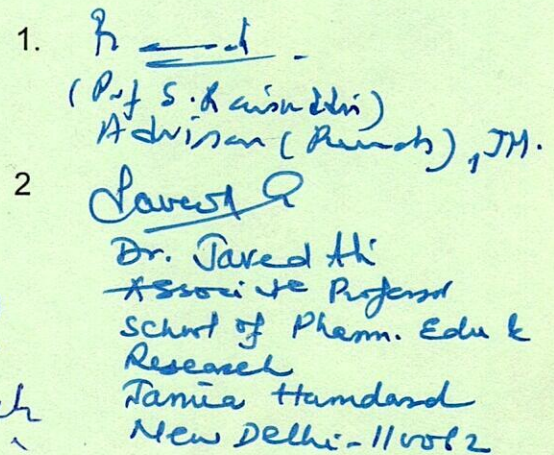 1.
(Prof S. Raisuddin)
Advisor ( ), JH.
2
Javed A
Dr. Javed Ali
Associate Professor
School of Pharm. Edu &
Research
Jamia Hamdard
New Delhi-110062